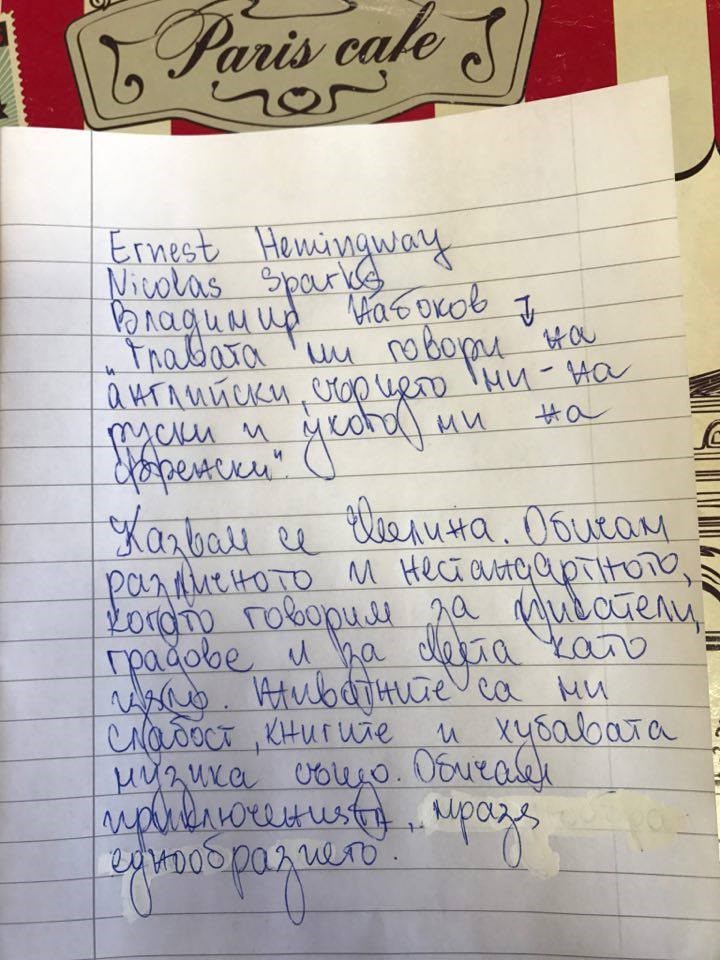 Paris cafe
Ernest Hemingway
Nicolas Sparks
Владимир Набоков ↓
„Главата ми говори на
английски, сърцето ми - на
руски и ухото ми на
френски".
Казвам се Ивелина. Обичам
различното и нестандартното,
когато говорим за писатели,
градове и за света като
цяло. Животните са ми
слабост, книгите и хубавата
музика също. Обичам
приключенията, мразя
еднообразието.